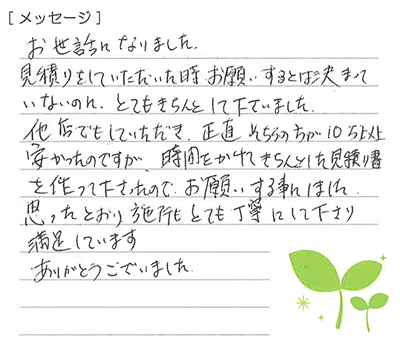 [メッセージ]
お世話になりました。
見積りをしていただいた時、お願いするとは決まって
いないのに、とてもきちんとして下さいました。
他店でもしていただき、正直そちらの方が10万以上
安かったのですが、時間をかけてきちんとした見積り書
を作って下さったので、お願いする事にしました。
思ったとおり施行もとても丁寧にして下さり
満足しています
ありがとうございました。